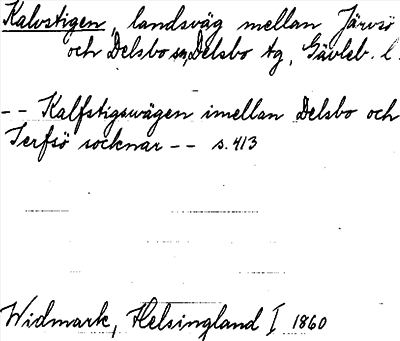 Kalvstigen, landsväg mellan Järvsö
och Delsbo sn, Delsbo tg, Gävleb. l.
-- Kalfstigsvägen imellan Delsbo och
Jerfsö socknar -- s. 413
Widmark, Helsingland I 1860